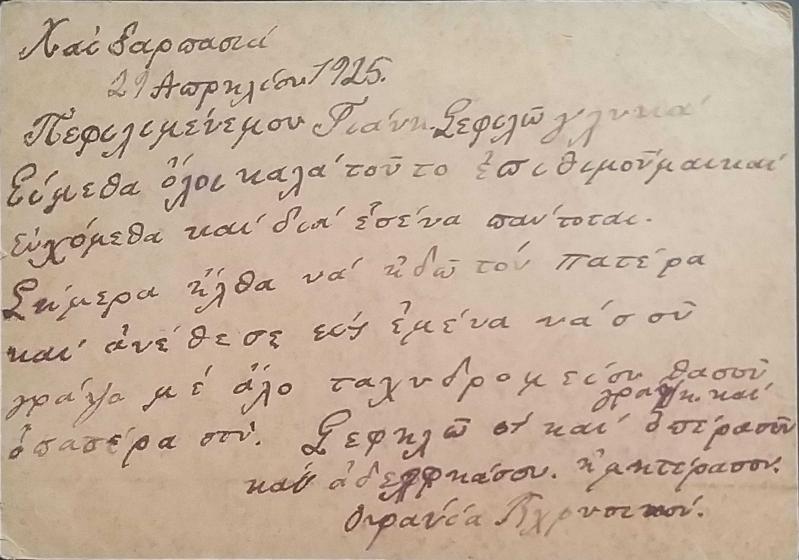 Χαϊδαρπασιά
29 Απρηλίου 1925.
Πεφιλιμένεμου Γιάνη. Σεφιλῶ γλυκά
Είμεθα ὅλοι καλά τοῦτο ἐπιθιμοῦμαι καί
εὐχόμεθα καί διά ἐσένα παντοται.
Σήμερα ἦλθα νά ἠδῶ τόν πατέρα
καί ἀνέθεσε εἰς ἐμένα νά σοῦ
γράψο μέ ἄλο ταχυδρομείου θασοῦ
γραψη. καί
ὁ πατέρα σου. Σεφηλῶ καί ὁ πέρασοῦ
καί ἀδελφησου. ἡ μητέρασου.